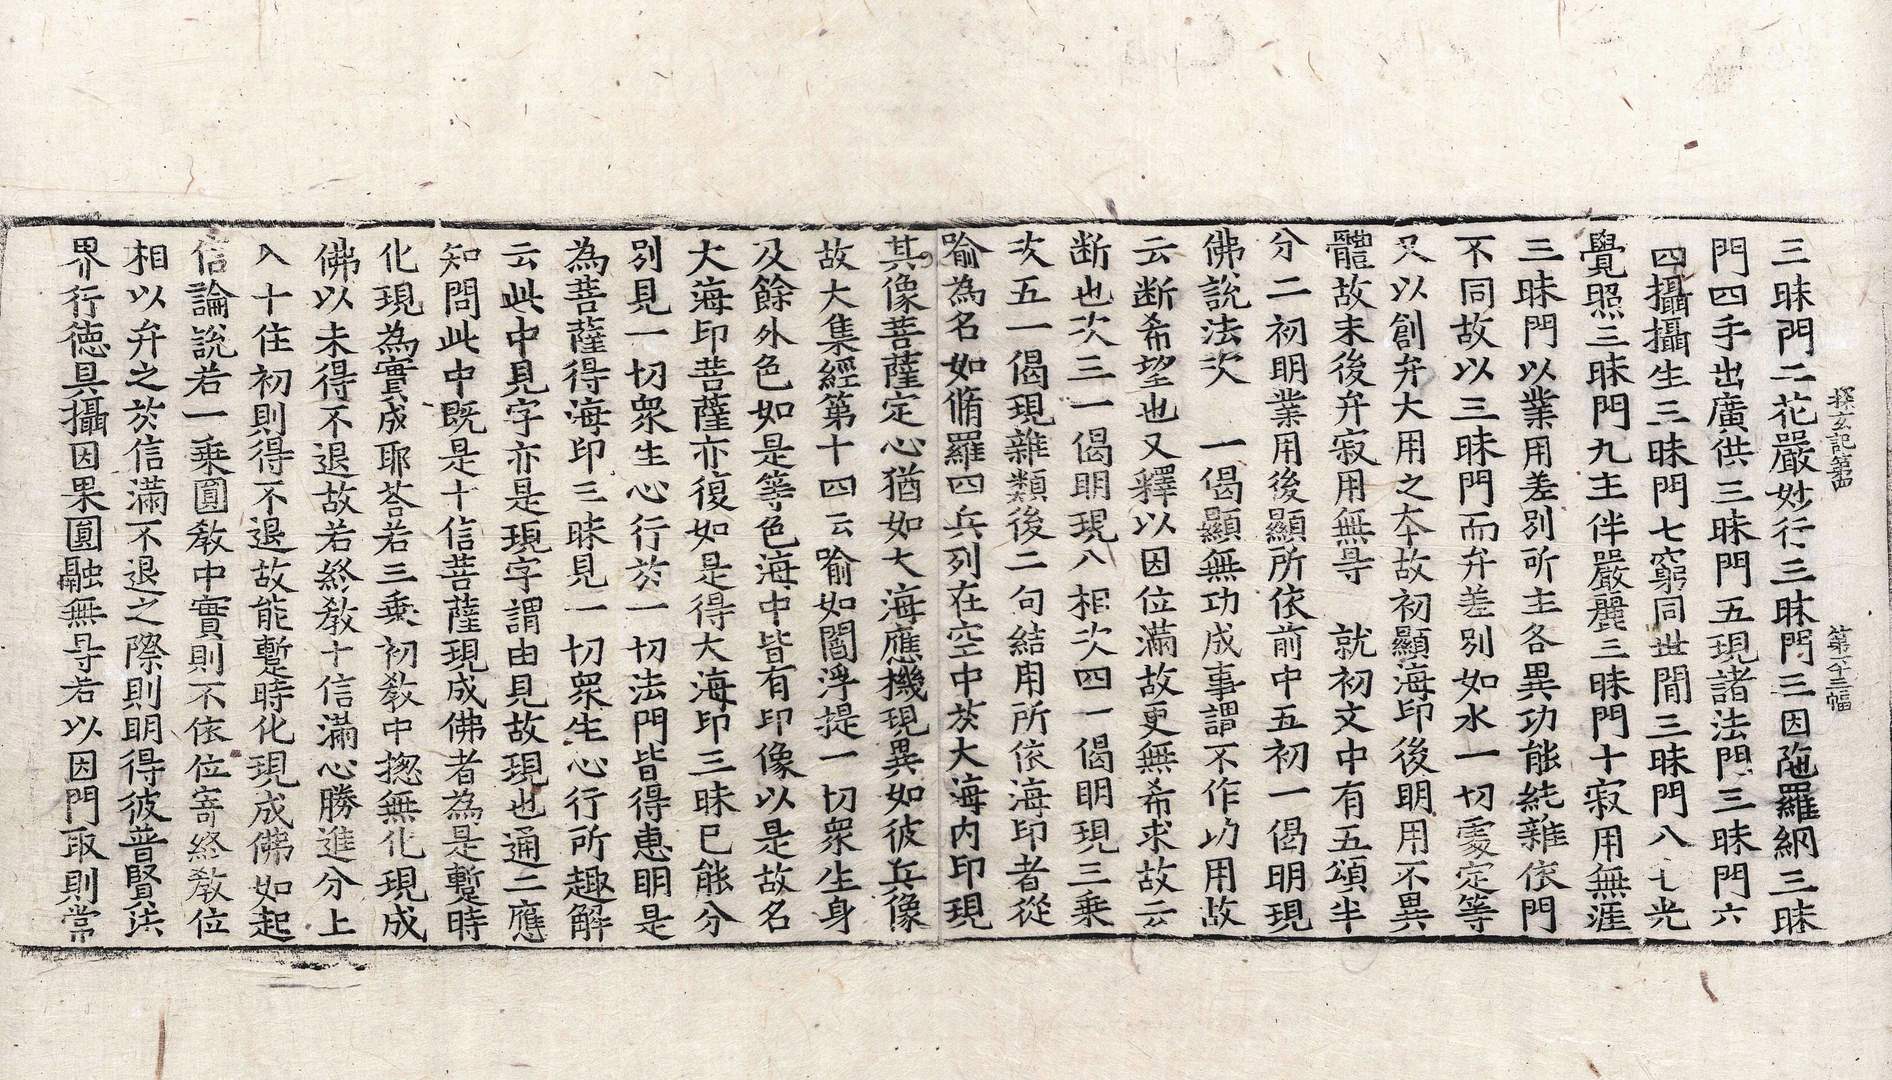 探玄記第四　第十三幅
三昧門二花嚴妙行三昧門三因陁羅網三昧
門四手出廣供三昧門五現諸法門三昧門六
四攝攝生三昧門七窮同世間三昧門八七光
覺照三昧門九主伴嚴麗三昧門十寂用無涯
三昧門以業用差別所主各異功能純雜依門
不同故以三昧門而弁差別如水一切處定等
又以創弁大用之本故初顯海印後明用不異
體故末後弁寂用無㝵　就初文中有五頌半
分二初明業用後顯所依前中五初一偈明現
佛說法次　一偈顯無功成事謂不作功用故
云断希望也又釋以因位滿故更無希求故云
断也次三一偈明現八相次四一偈明現三乗
次五一偈現雜類後二句結用所依海印者從
喻為名如脩羅四兵列在空中於大海內印現
其像菩薩定心猶如大海應機現異如彼兵像
故大集經第十四云喻如閻浮提一切衆生身
及餘外色如是等色海中皆有印像以是故名
大海印菩薩亦復如是得大海印三昧已能分
別見一切衆生心行於一切法門皆得惠明是
為菩薩得海印三昧見一切衆生心行所趣解
云此中見字亦是現字謂由見故現也通二應
知問此中既是十信菩薩現成佛者為是蹔時
化現為實成耶荅若三乗初敎中揔無化現成
佛以未得不退故若終敎十信滿心勝進分上
入十住初則得不退故能蹔時化現成佛如起
信論說若一乗圓敎中實則不依位寄終敎位
相以弁之於信滿不退之際則明得彼普賢法
界行德具攝因果圓融無㝵若以因門取則常